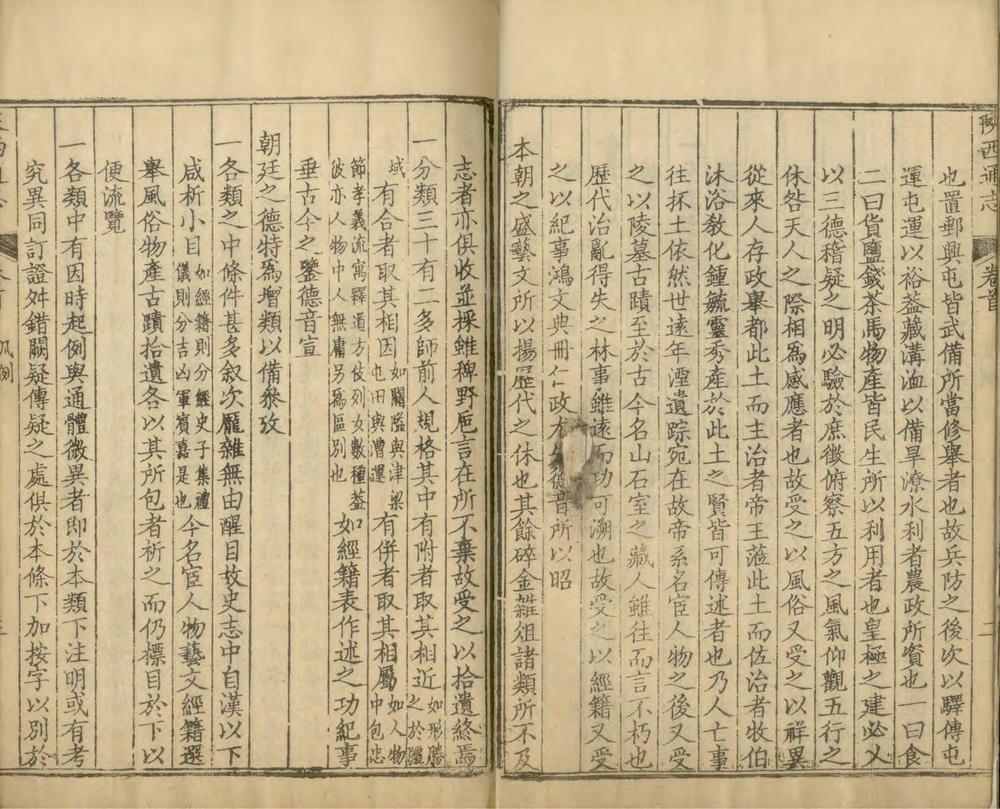 陝西通志
卷首
二
也置郵興屯皆武備所當修舉者也故兵防之後次以驛傳屯
運屯運以裕葢藏溝洫以備旱潦水利者農政所資也一曰食
二曰貨鹽錢茶馬物產皆民生所以利用者也皇極之建必乂
以三德稽疑之明必驗於庶徵俯察五方之風氣仰觀五行之
休咎天人之際相爲感應者也故受之以風俗又受之以祥異
從來人存政舉都此土而主治者帝王蒞此土而佐治者牧伯
沐浴敎化鍾毓靈秀產於此土之賢皆可傳述者也乃人亡事
往抔土依然世遠年湮遺踪宛在故帝系名宦人物之後又受
之以陵墓古蹟至於古今名山石室之藏人雖往而言不朽也
歷代治亂得失之林事雖遠而功可溯也故受之以經籍又受
之以紀事鴻文典冊仁政德音所以昭
本朝之盛藝文所以揚歷代之休也其餘碎金雜俎諸類所不及
志者亦俱收並採雖稗野巵言在所不棄故受之以拾遺終焉
一分類三十有二多師前人規格其中有附者取其相近如形勝之於疆
域有合者取其相因如關隘與津梁屯田與漕運有併者取其相屬如人物中包忠
節孝義流寓釋道方伎列女數種葢彼亦人物中人無庸另爲區別也如經籍表作述之功紀事
垂古今之鑒德音宣
朝廷之德特爲增類以備叅攷
一各類之中條件甚多叙次龎雜無由醒目故史志中自漢以下
咸析小目如經籍則分經史子集禮儀則分吉凶軍賓嘉是也今名宦人物藝文經籍選
舉風俗物產古蹟拾遺各以其所包者析之而仍標目於下以
便流覽
一各類中有因時起例與通體微異者即於本類下注明或有考
究異同訂證舛錯闕疑傳疑之處俱於本條下加按字以別於